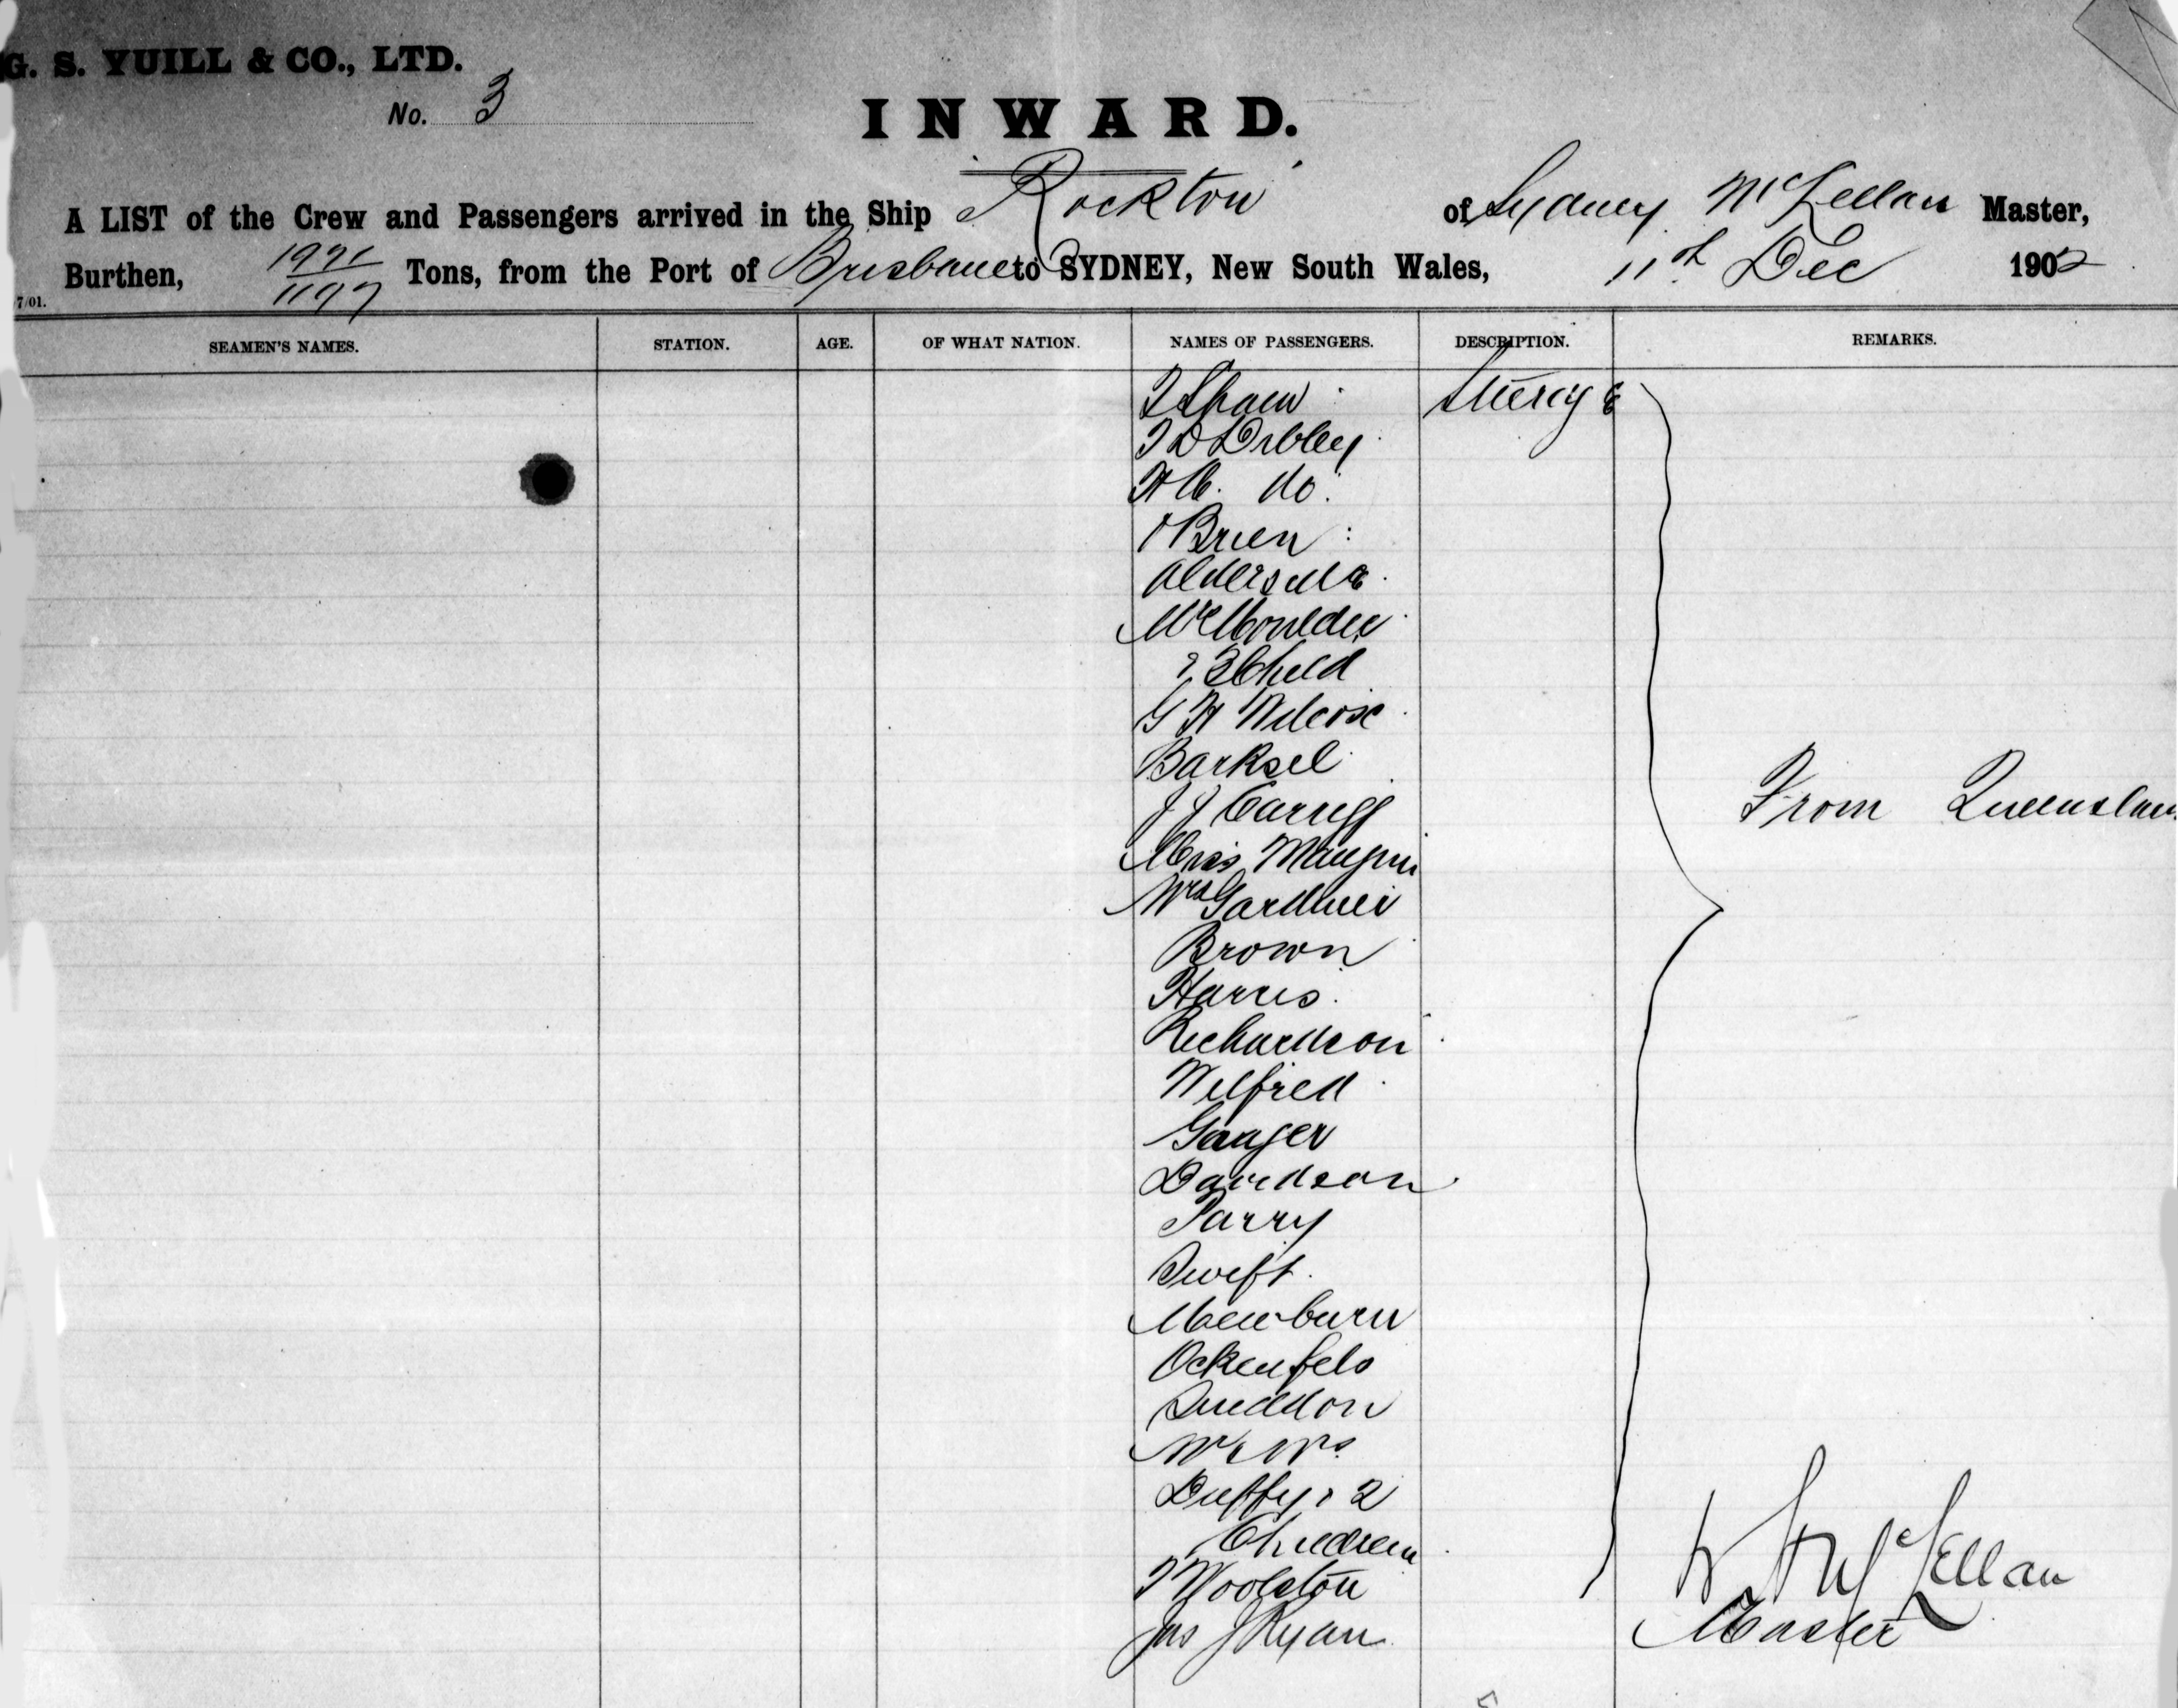 G. S. YUILL & CO., LTD.
No. 3
INWARD.
A LIST of the Crew and Passengers arrived in the Ship Rockton of Sydney McLellan Master,
Burthen, 1971/1197 Tons, from the Port of Brisbane to SYDNEY, New South Wales, 11th Dec 1902
7/01.
SEAMEN'S NAMES. STATION. AGE. OF WHAT NATION. NAMES OF PASSENGERS. DESCRIPTION. REMARKS.
T Shaw
T D Dibley
H C. do.
O'Brien
& Child
G H Wilcox
J J
Miss
Mrs Gardiner
Brown
Harris.
Richardson
Wilfred
Davidson
Parry
Swift.
Ockenfels
Sneddon
Mr & Mrs
Duffy & 2
Children
Woolston
Jas J Ryan
From
McLellan
Master